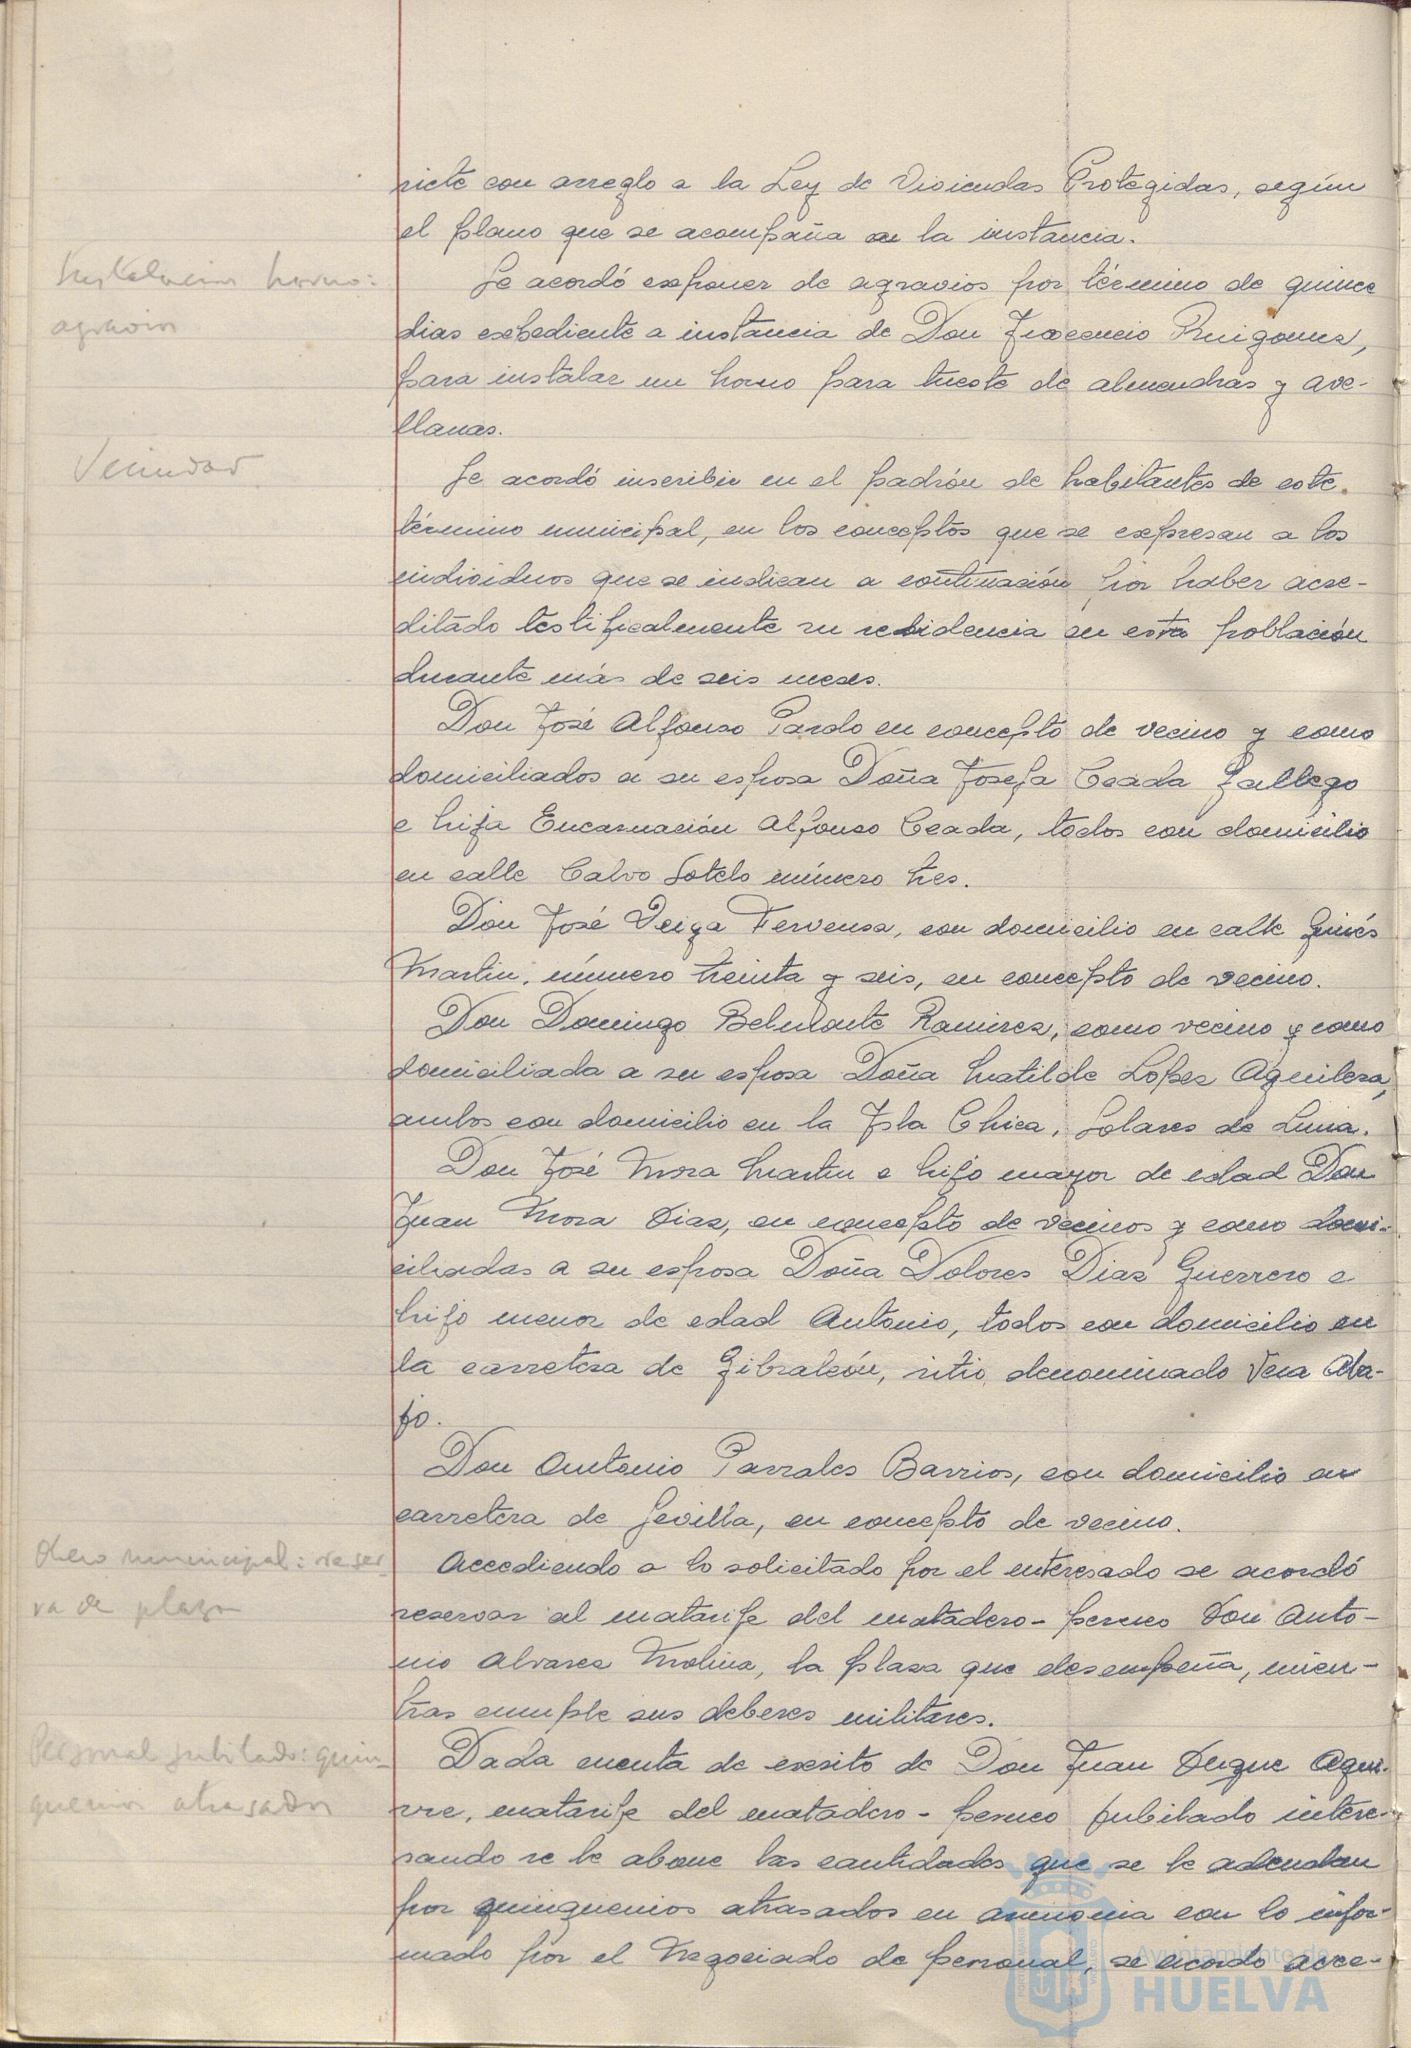 siete con arreglo a la Ley de Viviendas Protegidas, según
el plano que se acompaña en la instancia.
Instalacion horno:
agravios
Se acordó exponer de agravios por término de quince
dias expediente a instancia de Don Inocencio Ruigomez,
para instalar un horno para tueste de almendras y ave-
llanas.
Vecindad
Se acordó inscribir en el padrón de habitantes de este
término municipal, en los conceptos que se expresan a los
individuos que se indican a continuación por haber acre-
ditado testificalmente su residencia en esta población
durante más de seis meses.
Don José Alfonso Pardo en concepto de vecino y como
domiciliados a su esposa Doña Josefa Ceada Gallego
e hija Encarnación Alfonso Ceada, todos con domicilio
en calle Calvo Sotelo número tres.
Don José Veiga Fervensa, con domicilio en calle Ginés
Martin, número treinta y seis, en concepto de vecino.
Don Domingo Belmonte Ramirez, como vecino y como
domiciliada a su esposa Doña Matilde Lopez Aguilera,
ambos con domicilio en la Isla Chica, Solares de Luna.
Don José Mora Martin e hijo mayor de edad Don
Juan Mora Diaz, en concepto de vecinos y como domi-
ciliadas a su esposa Doña Dolores Diaz Guerrero e
hijo menor de edad Antonio, todos con domicilio en
la carretera de Gibraleón, sitio denominado Vera Aba-
jo.
Don Antonio Parrales Barrios, con domicilio en
carretera de Sevilla, en concepto de vecino.
Obrero municipal: reser
va de plaza
Accediendo a lo solicitado por el interesado se acordó
reservar al matarife del matadero-perneo Don Anto-
nio Alvarez Molina, la plaza que desempeña, mien-
tras cumple sus deberes militares.
Personal jubilado: quin-
quenios atrasados
Dada cuenta de escrito de Don Juan Duque Agui-
rre, matarife del matadero-perneo jubilado intere-
sando se le abone las cantidades que se le adeudan
por quinquenios atrasados en armonia con lo infor-
mado por el Negociado de personal, se acordo acce-
Ayuntamiento de
HUELVA